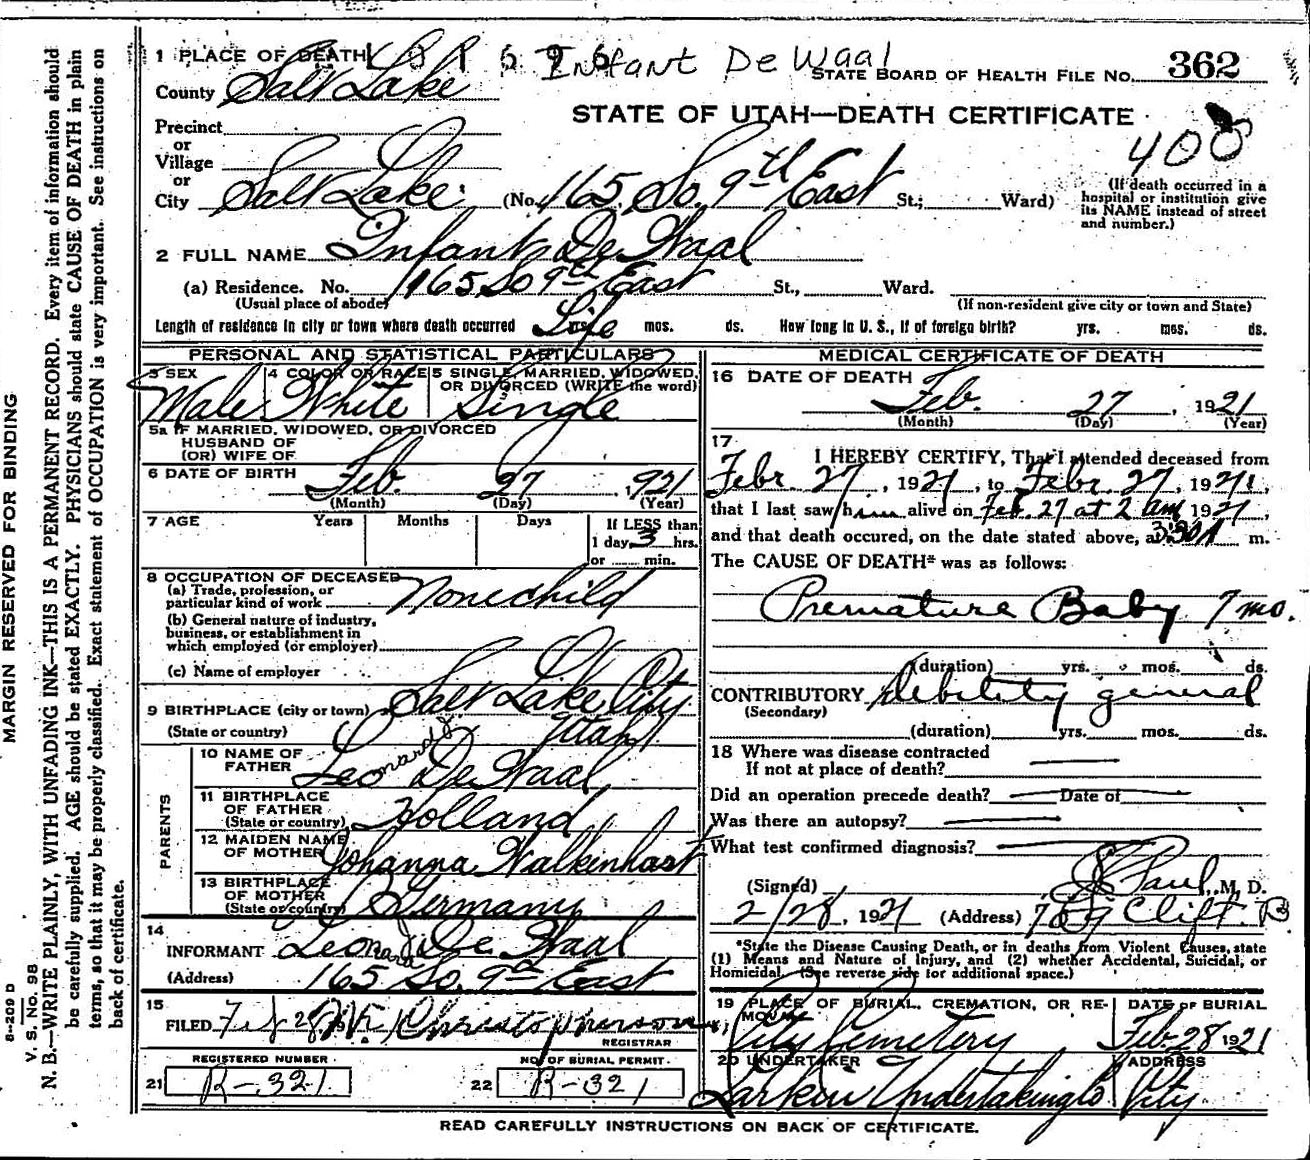 1 PLACE OF DEATH
Infant De Waal
STATE BOARD OF HEALTH FILE NO. 362
County Salt Lake
STATE OF UTAH—DEATH CERTIFICATE
400
Precinct
or
Village
or
City Salt Lake (No. 165 So. 9th East St.; Ward)
(If death occurred in a
hospital or institution give
its NAME instead of street
and number.)
2 FULL NAME Infant De Waal
(a) Residence. No. 165 So 9th East St., Ward.
(Usual place of abode) (If non-resident give city or town and State)
Length of residence in city or town where death occurred Life yrs. mos. ds. How long in U. S., if of foreign birth? yrs. mos. ds.
PERSONAL AND STATISTICAL PARTICULARS
3 SEX 4 COLOR OR RACE 5 SINGLE, MARRIED, WIDOWED,
OR DIVORCED (WRITE the word)
Male White Single
5a IF MARRIED, WIDOWED, OR DIVORCED
HUSBAND OF
(OR) WIFE OF
6 DATE OF BIRTH Feb. 27 1921
(Month) (Day) (Year)
7 AGE Years Months Days If LESS than
1 day, 3 hrs.
or ...... min.
8 OCCUPATION OF DECEASED
(a) Trade, profession, or
particular kind of work None child
(b) General nature of industry,
business, or establishment in
which employed (or employer)
(c) Name of employer
9 BIRTHPLACE (city or town) Salt Lake City
(State or country) Utah
PARENTS
10 NAME OF
FATHER Leonard J De Waal
11 BIRTHPLACE
OF FATHER
(State or country) Holland
12 MAIDEN NAME
OF MOTHER Johanna Walkenhast
13 BIRTHPLACE
OF MOTHER
(State or country) Germany
14
INFORMANT Leonard J De Waal
(Address) 165 So. 9th East
15
FILED Feb 28 Christopherson
REGISTRAR
REGISTERED NUMBER NO. OF BURIAL PERMIT.
21 R-321 22 R-321
MEDICAL CERTIFICATE OF DEATH
16 DATE OF DEATH
Feb. 27, 1921
(Month) (Day) (Year)
17
I HEREBY CERTIFY, That I attended deceased from
Febr. 27, 1921, to Febr. 27, 1921,
that I last saw him alive on Feb. 27 at 2 am 1921,
and that death occured, on the date stated above, at 3:30 A m.
The CAUSE OF DEATH* was as follows:
Premature Baby 7 mo.
(duration) yrs. mos. ds.
CONTRIBUTORY debility general
(Secondary)
(duration) yrs. mos. ds.
18 Where was disease contracted
If not at place of death?
Did an operation precede death? Date of
Was there an autopsy?
What test confirmed diagnosis?
(Signed) Paul, M. D.
2/28, 1921 (Address) Clift B
*State the Disease Causing Death, or in deaths from Violent Causes, state
(1) Means and Nature of Injury, and (2) whether Accidental, Suicidal, or
Homicidal. (See reverse side for additional space.)
19 PLACE OF BURIAL, CREMATION, OR RE-
MOVAL DATE OF BURIAL
City Cemetery Feb. 28 1921
20 UNDERTAKER ADDRESS
Larkin Undertaking Co City
READ CAREFULLY INSTRUCTIONS ON BACK OF CERTIFICATE.
MARGIN RESERVED FOR BINDING
8—209 D
V. S. No. 98
N. B.—WRITE PLAINLY, WITH UNFADING INK—THIS IS A PERMANENT RECORD. Every item of information should
be carefully supplied. AGE should be stated EXACTLY. PHYSICIANS should state CAUSE OF DEATH in plain
terms, so that it may be properly classified. Exact statement of OCCUPATION is very important. See instructions on
back of certificate.